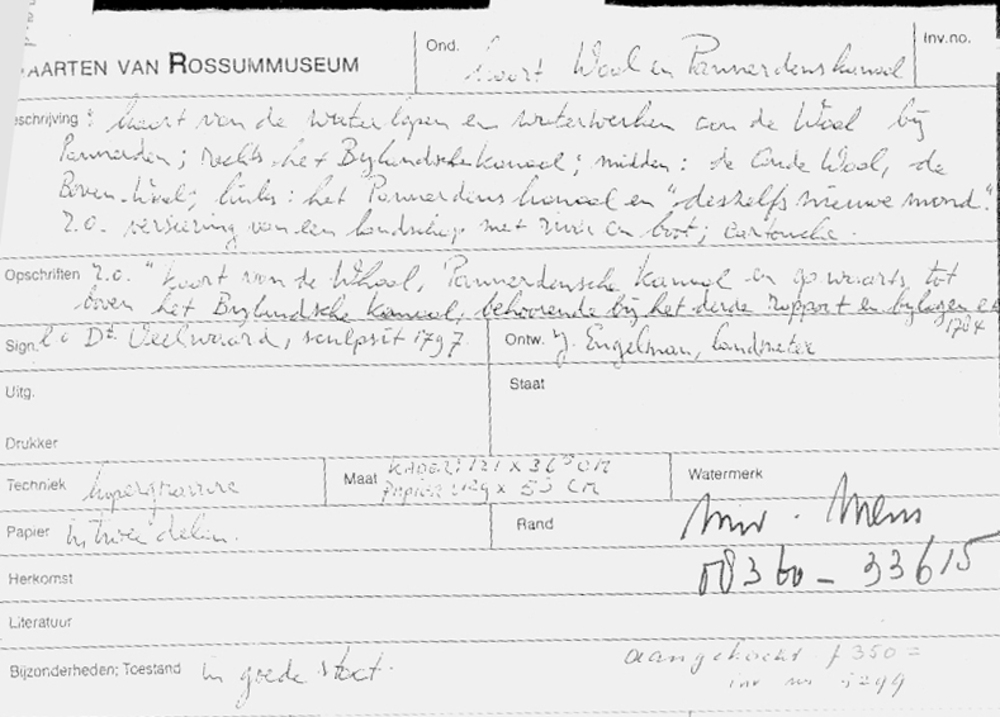 AARTEN VAN ROSSUMMUSEUM
Ond. Kaart Waal en Pannerdens kanaal
Inv.no.
eschrijving: kaart van de waterlopen en waterwerken aan de Waal bij
Pannerden; rechts het Bylandsche kanaal; midden: de Oude Waal, de
Boven-Waal; links: het Pannerdens kanaal en "deszelfs nieuwe mond".
r.o. versiering van een landschap met rivier en boot; cartouche.
Opschriften r.o. "Kaart van de Whaal, Pannerdensche Kanaal en opwaarts tot
boven het Bylandsche Kanaal, behoorende bij het derde rapport en bylagen
1784
Sign. l.o Dk Veelwaard, sculpsit 1797.
Ontw. J. Engelman, landmeter
Uitg.
Staat
Drukker
Techniek kopergravure
Maat KADER: 121 x 36 CM
PAPIER: 129 x 53 CM
Watermerk
Papier in twee delen.
Rand
Herkomst
08360 - 33615
Literatuur
Bijzonderheden; Toestand in goede staat.
aangekocht f 350 =
inv nr 5299